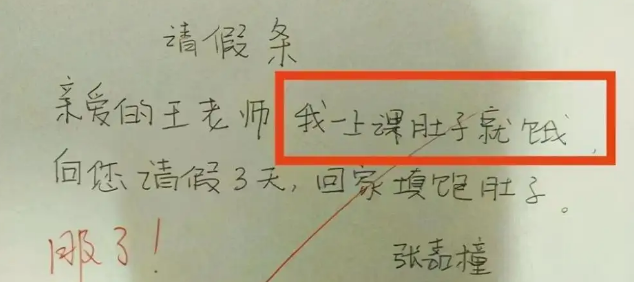 请假条
亲爱的王老师我一上课肚子就饿,
向您请假3天,回家填饱肚子。
服了!
张嘉橦